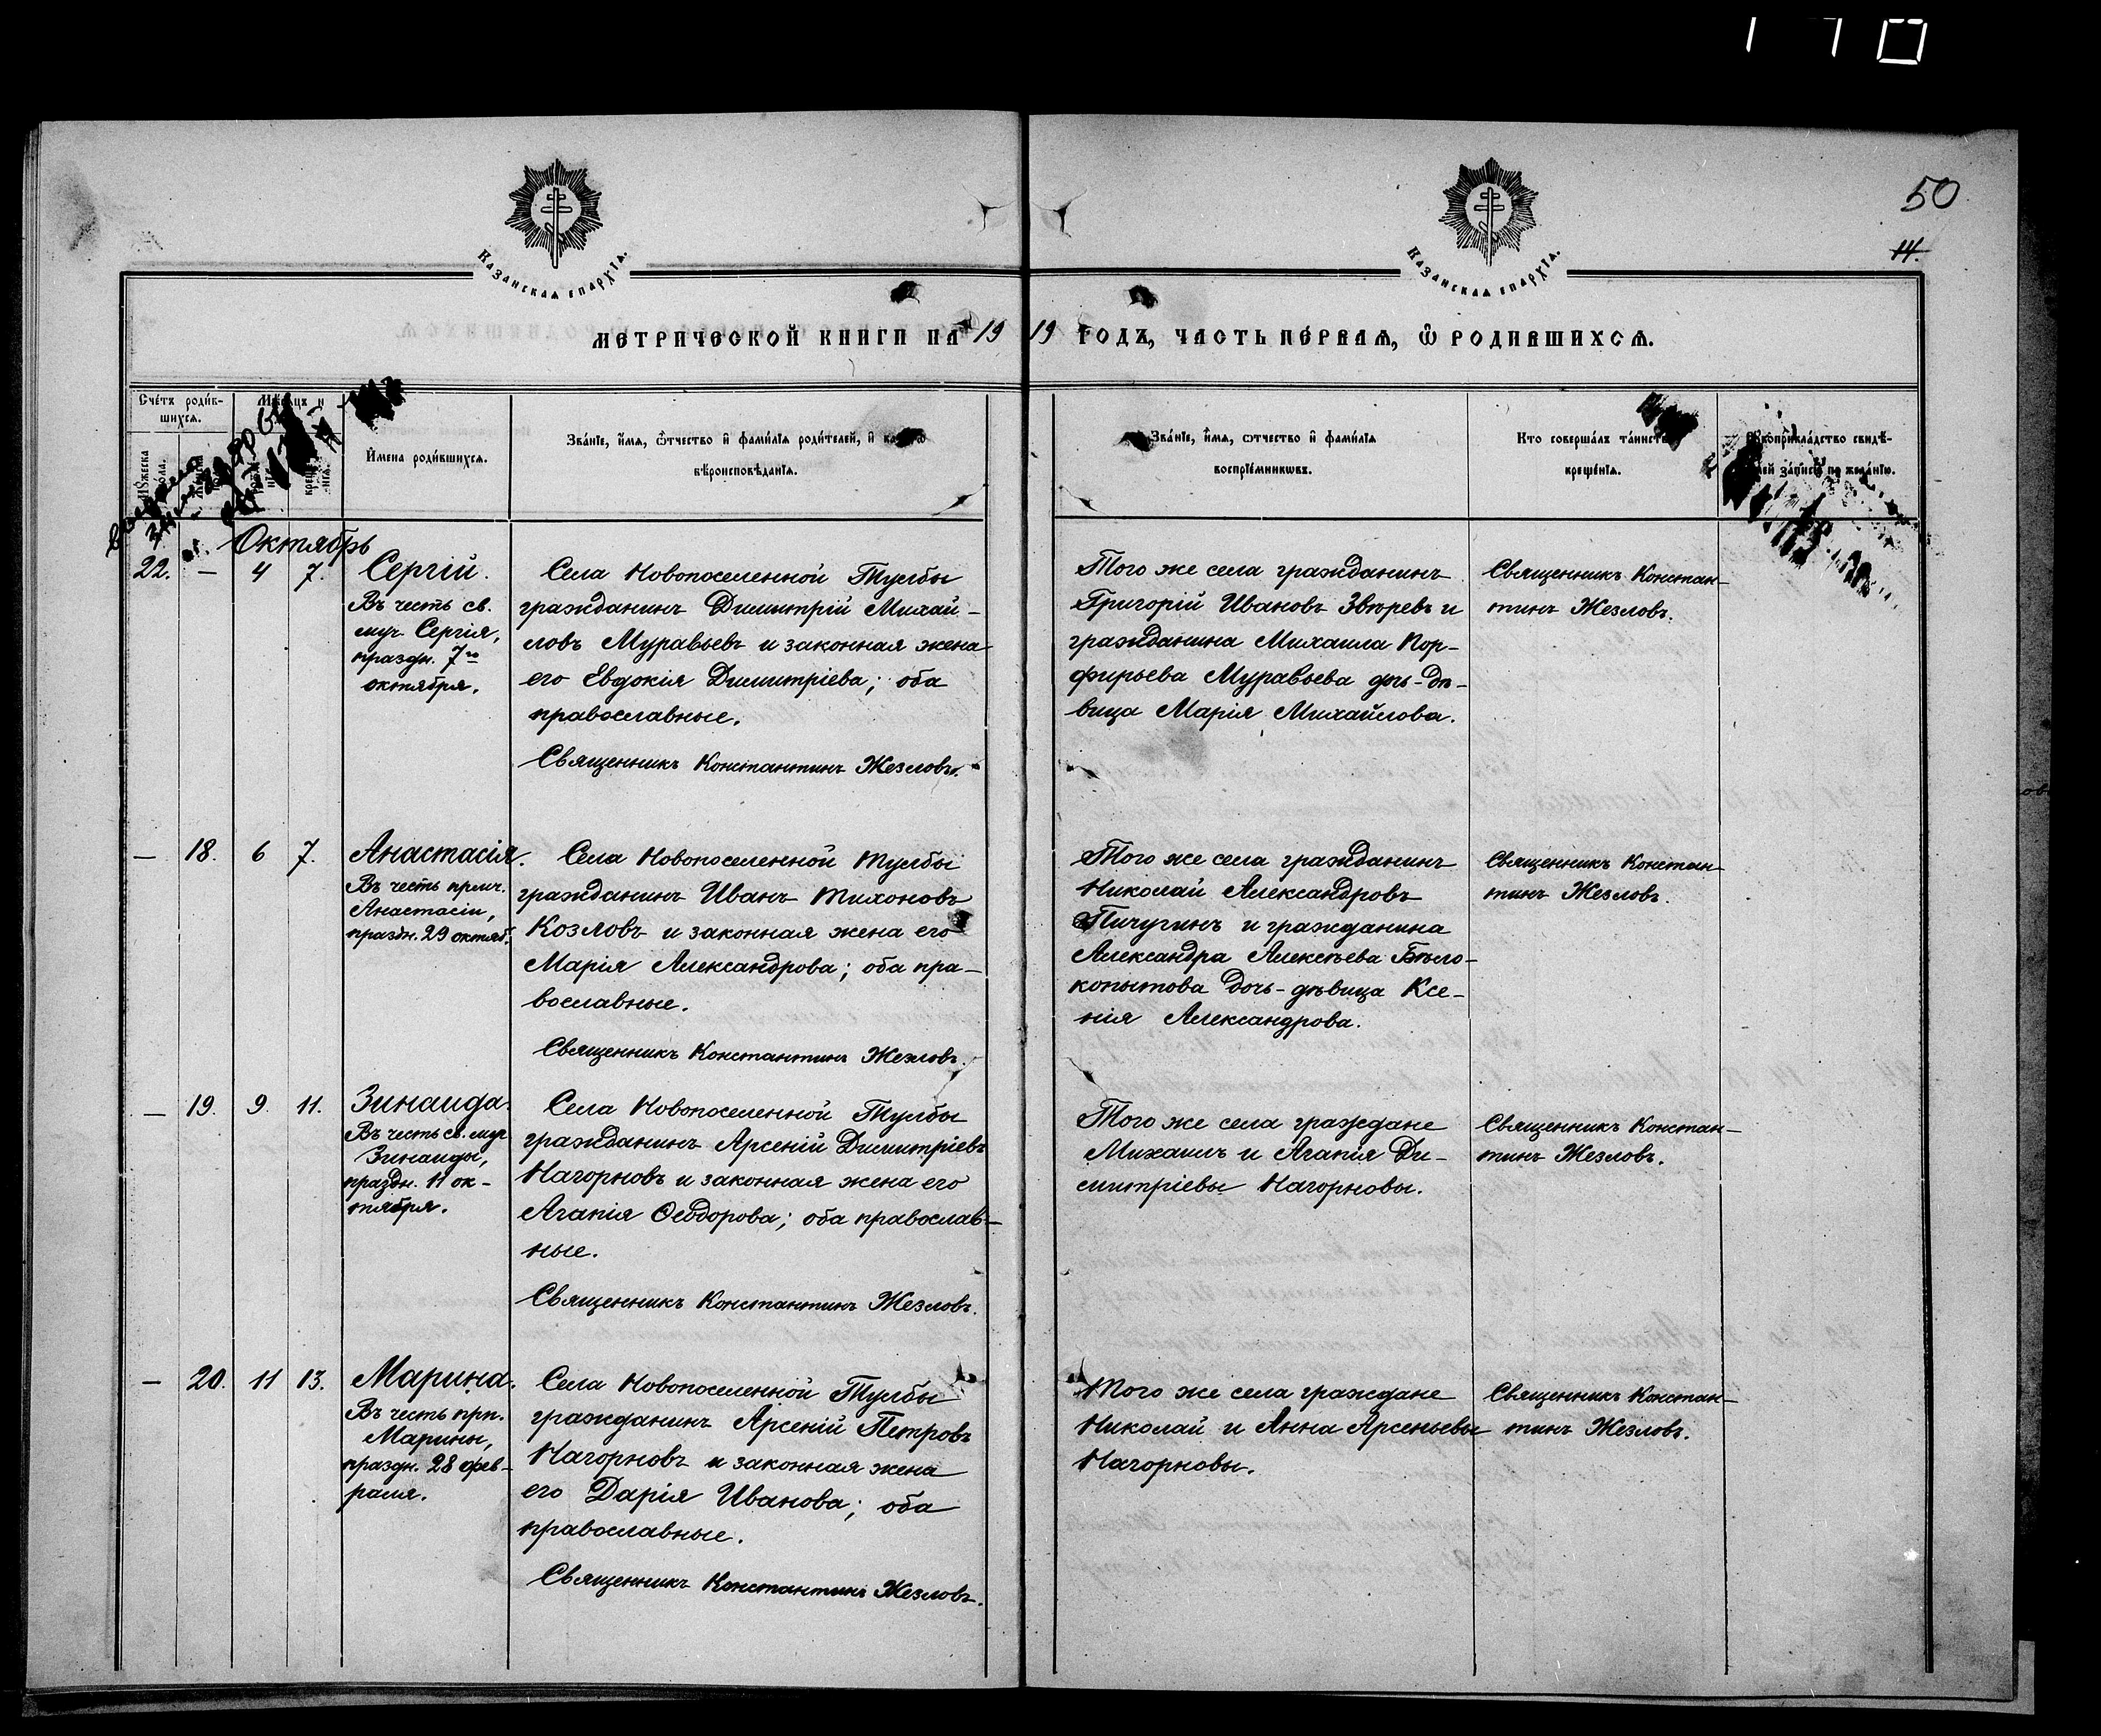 170
50
14.
Казанская епархїѧ.
Казанская епархїѧ.
МЕТРИЧЕСКОЙ КНИГИ НА 1919 ГОДЪ, ЧАСТЬ ПЕРВАЯ, Ѽ РОДИВШИХСЯ.
Сче́тъ роди́в-
шихся.
Мѣсяцъ и
Имена роди́вшихся.
Зва́нїе, и́мя, ѻ́тчество и҆ фами́лїѧ роди́телей, и҆
вѣроисповѣ́данїѧ.
Зва́нїе, и́мя, ѻтчество и҆ фами́лїѧ
воспрїе́мниковъ.
Кто соверша́лъ та́инство
креще́нїѧ.
Рꙋкоприкла́дство свидѣ́-
телей за́писи по жела́нїю.
Октябрь
22. — 4 7. Сергій.
Въ честь св.
муч. Сергія,
праздн. 7го
октября.
Села Новопоселенной Тулбы
гражданинъ Димитрій Михай-
ловъ Муравьевъ и законная жена
его Евдокія Димитріева; оба
православные.
Священникъ Константинъ Жезловъ.
Того же села гражданинъ
Григорій Ивановъ Звѣревъ и
гражданина Михаила Пор-
фирьева Муравьева дочь-дѣ-
вица Марія Михайлова.
Священникъ Констан-
тинъ Жезловъ.
— 18. 6 7. Анастасія.
Въ честь прмч.
Анастасіи,
праздн. 29 октяб.
Села Новопоселенной Тулбы
гражданинъ Иванъ Тихоновъ
Козловъ и законная жена его
Марія Александрова; оба пра-
вославные.
Священникъ Константинъ Жезловъ.
Того же села гражданинъ
Николай Александровъ
Пичугинъ и гражданина
Александра Алексѣева Бѣло-
копытова дочь-дѣвица Ксе-
нія Александрова.
Священникъ Констан-
тинъ Жезловъ.
— 19. 9. 11. Зинаида.
Въ честь св. муч.
Зинаиды,
праздн. 11 ок-
тября.
Села Новопоселенной Тулбы
гражданинъ Арсеній Димитріевъ
Нагорновъ и законная жена его
Агапія Ѳеодорова; оба православ-
ные.
Священникъ Константинъ Жезловъ.
Того же села граждане
Михаилъ и Агапія Ди-
митріевы Нагорновы.
Священникъ Констан-
тинъ Жезловъ.
— 20. 11 13. Марина.
Въ честь прп.
Марины,
праздн. 28 фев-
раля.
Села Новопоселенной Тулбы
гражданинъ Арсеній Петровъ
Нагорновъ и законная жена
его Дарія Иванова; оба
православные.
Священникъ Константинъ Жезловъ.
Того же села граждане
Николай и Анна Арсеньевы
Нагорновы.
Священникъ Констан-
тинъ Жезловъ.